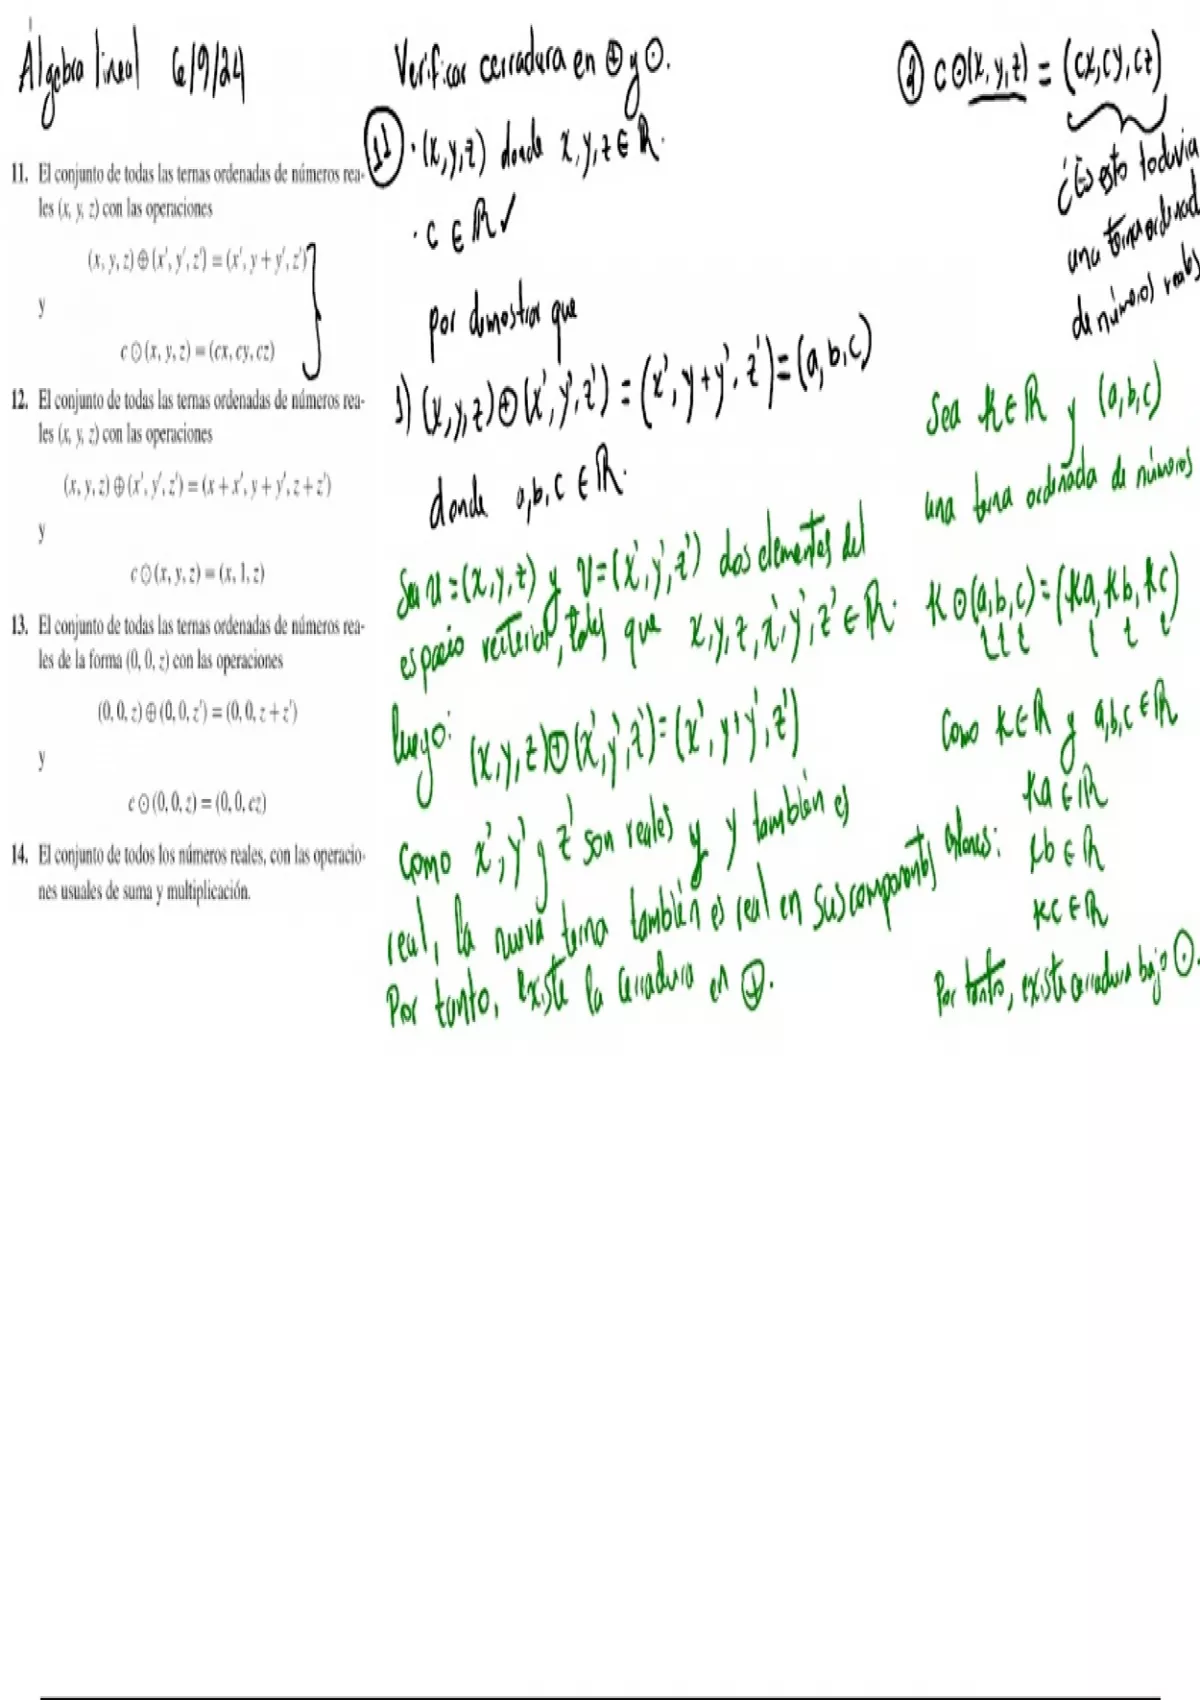 Álgebra lineal 6/9/24
11. El conjunto de todas las ternas ordenadas de números rea-
les (x, y, z) con las operaciones
(x, y, z) ⊕ (x', y', z') = (x', y + y', z')
y
c ⊙ (x, y, z) = (cx, cy, cz)
12. El conjunto de todas las ternas ordenadas de números rea-
les (x, y, z) con las operaciones
(x, y, z) ⊕ (x', y', z') = (x + x', y + y', z + z')
y
c ⊙ (x, y, z) = (x, 1, z)
13. El conjunto de todas las ternas ordenadas de números rea-
les de la forma (0, 0, z) con las operaciones
(0, 0, z) ⊕ (0, 0, z') = (0, 0, z + z')
y
c ⊙ (0, 0, z) = (0, 0, cz)
14. El conjunto de todos los números reales, con las operacio-
nes usuales de suma y multiplicación.
Verificar cerradura en ⊕ y ⊙.
11 · (x, y, z) donde x, y, z ∈ ℝ.
· c ∈ ℝ ✓
por demostrar que
1) (x, y, z) ⊕ (x', y', z') = (x', y + y', z') = (a, b, c)
donde a, b, c ∈ ℝ.
Sea u = (x, y, z) y v = (x', y', z') dos elementos del
espacio vectorial, tales que x, y, z, x', y', z' ∈ ℝ.
luego: (x, y, z) ⊕ (x', y', z') = (x', y + y', z')
Como x', y' y z' son reales y y también es
real, la nueva terna también es real en sus componentes
Por tanto, existe la cerradura en ⊕.
2) c ⊙ (x, y, z) = (cx, cy, cz)
¿Es esto todavia
una terna ordenad
de números reales
Sea k ∈ ℝ y (a, b, c)
una terna ordenada de números
k ⊙ (a, b, c) = (ka, kb, kc)
Como k ∈ ℝ y a, b, c ∈ ℝ
entonces: ka ∈ ℝ
kb ∈ ℝ
kc ∈ ℝ
Por tanto, existe cerradura bajo ⊙.